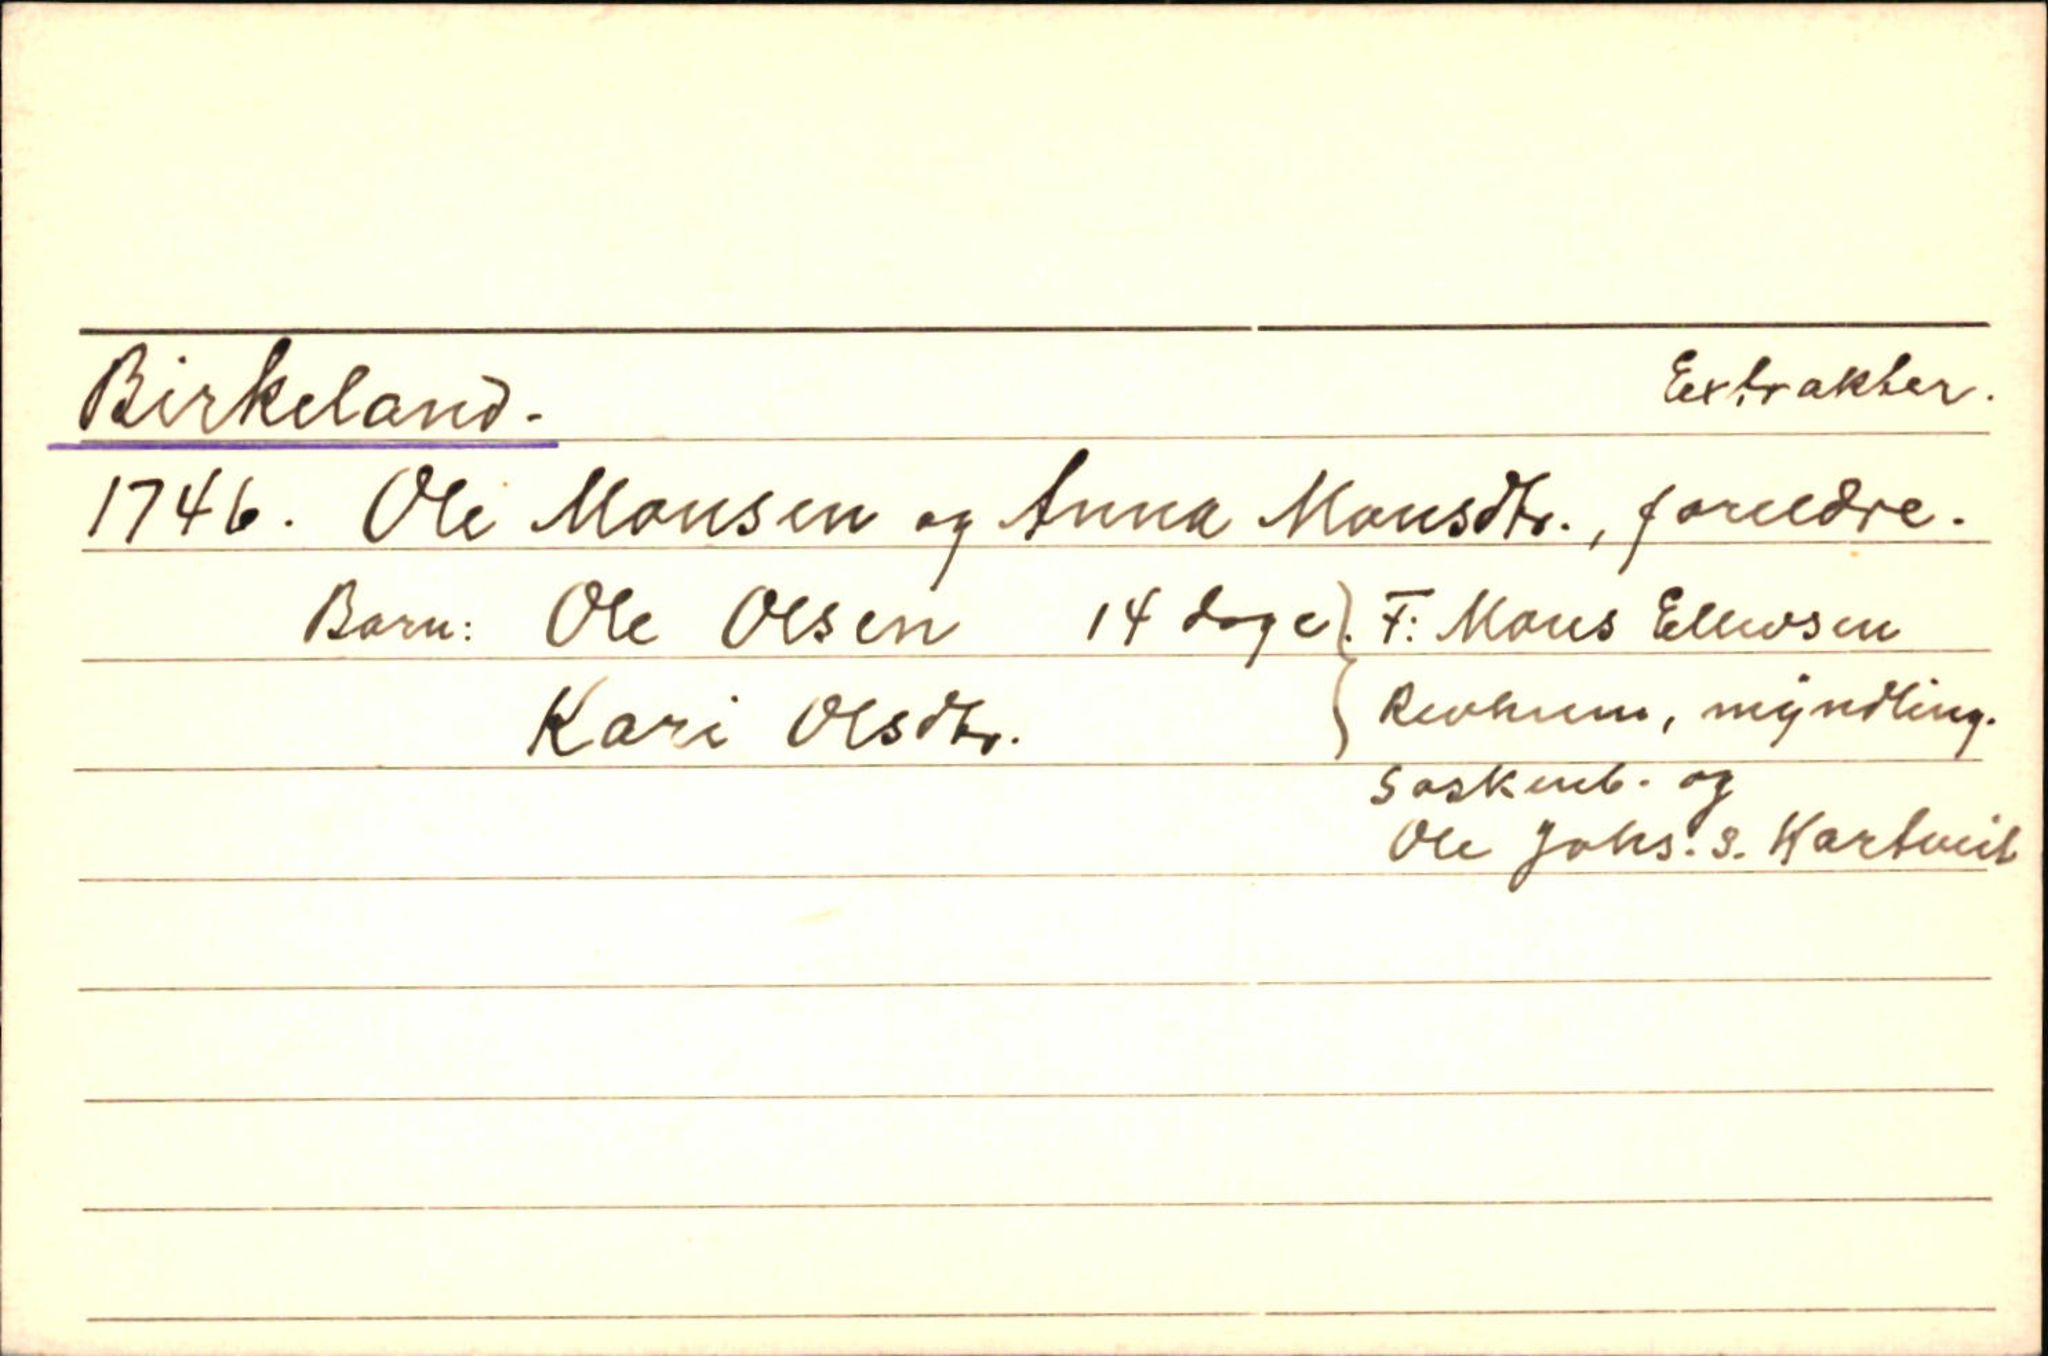 Birkeland. Extrakter.
1746. Ole Monsen og Anna Monsdtr., foreldre.
Barn: Ole Olsen 14 dage. F: Mons Ellewsen
Kari Olsdtr. Revheim, myndling.
søskenb. og
Ole Johs. s. Kartveit